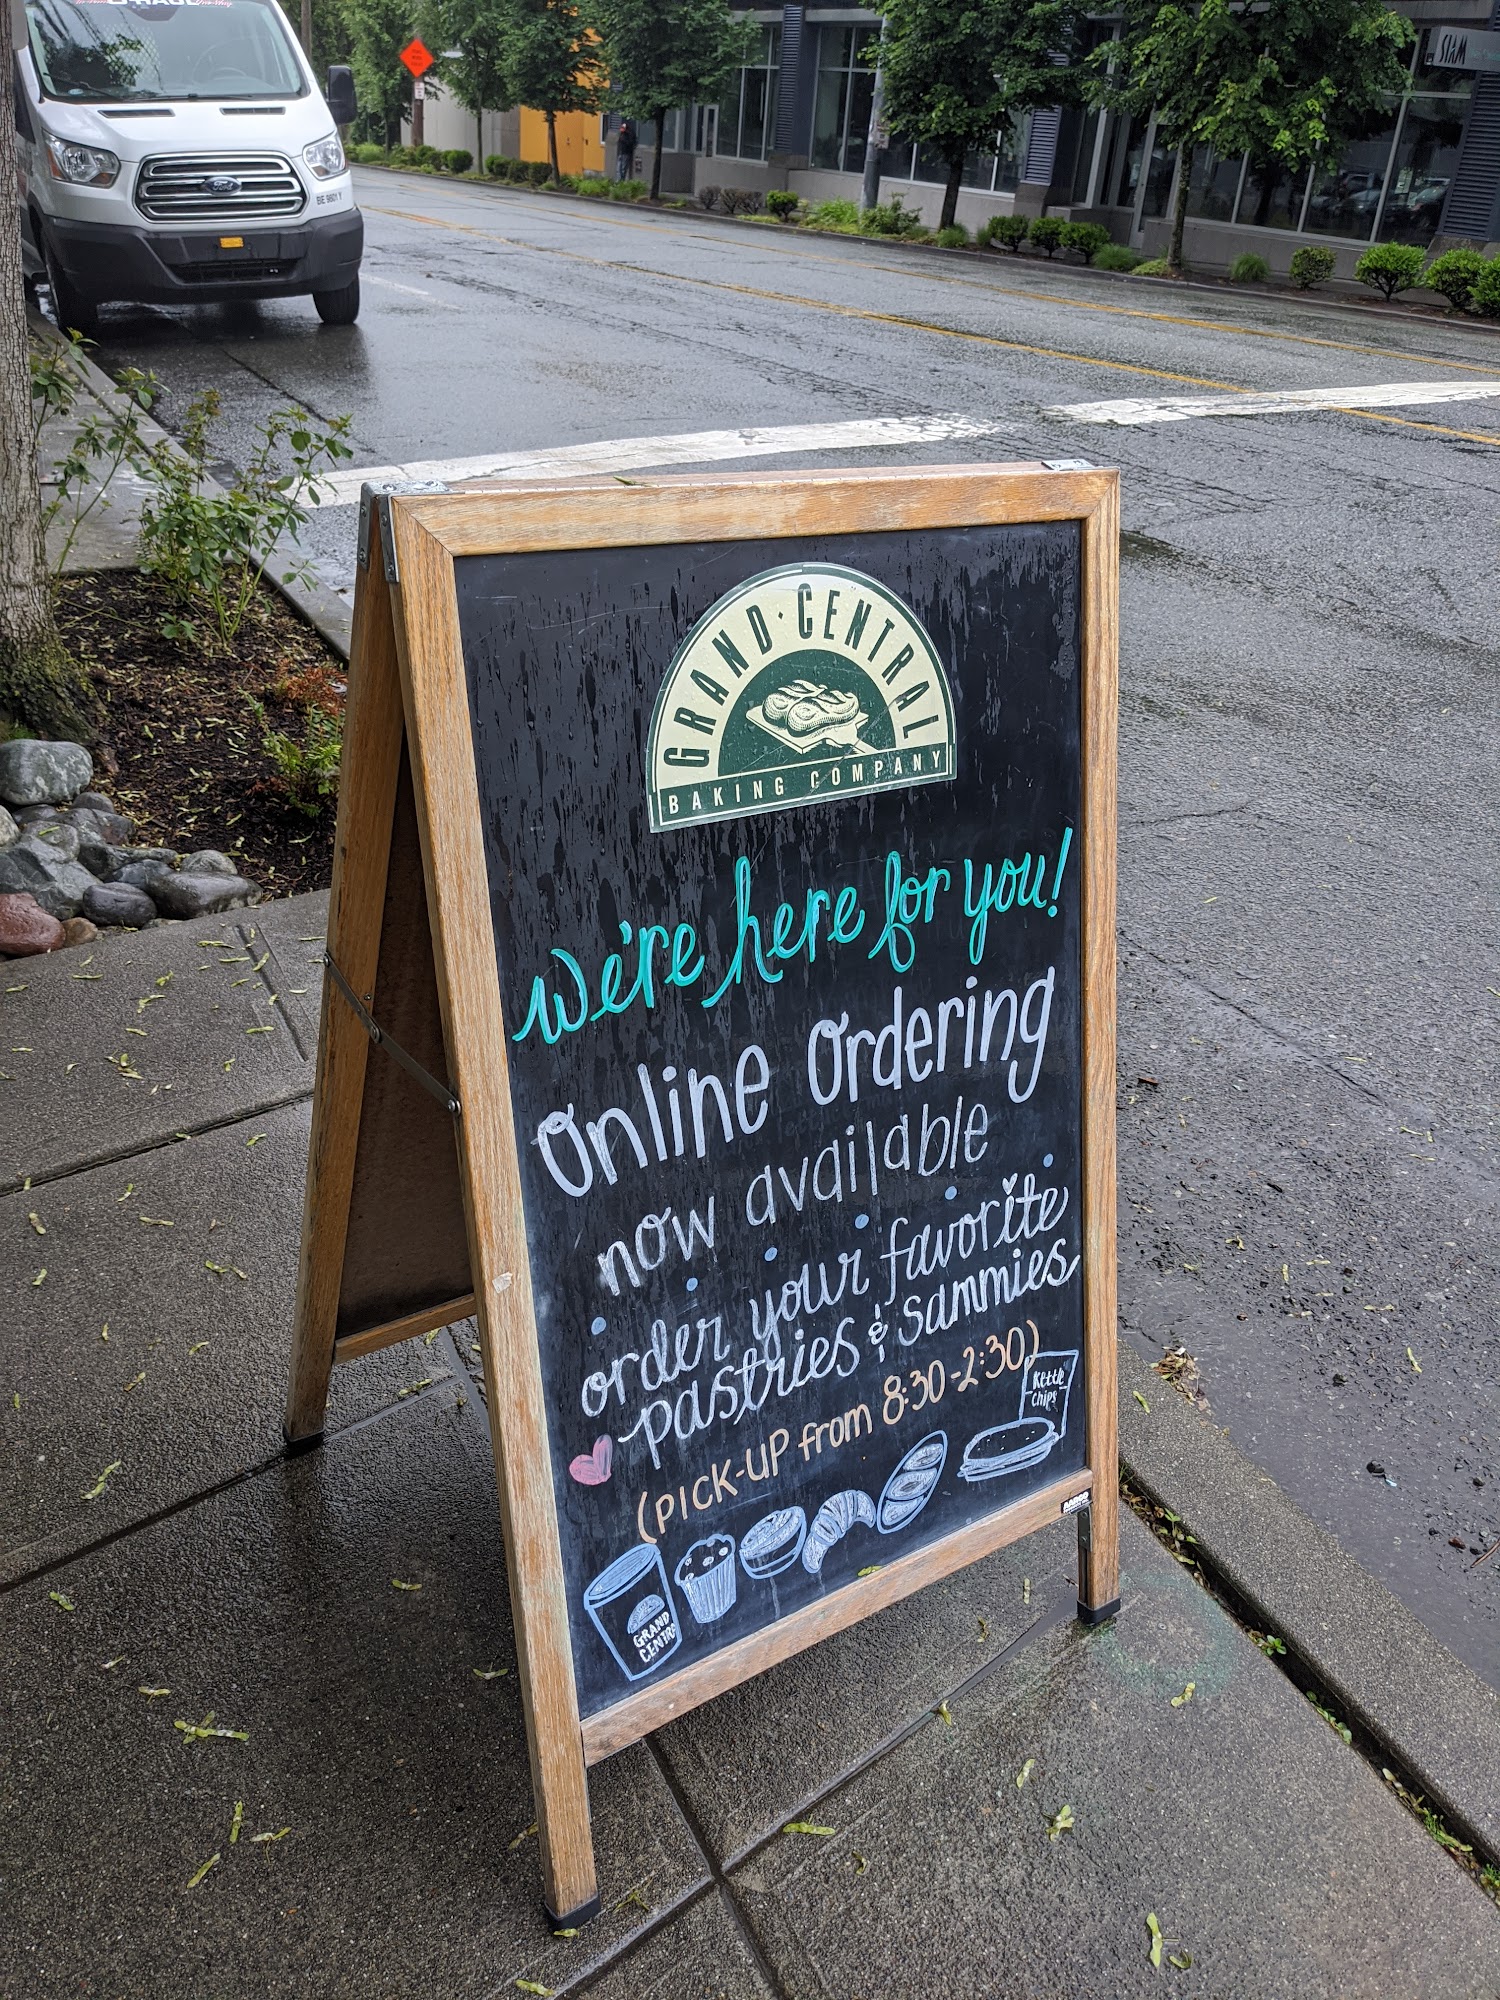 BE 9601 Y
SIAM
GRAND·CENTRAL
BAKING COMPANY
We're here for you!
Online Ordering
now available
order your favorite
pastries & sammies
(PICK-UP from 8:30-2:30)
Kettle
Chips
GRAND
CENTRAL